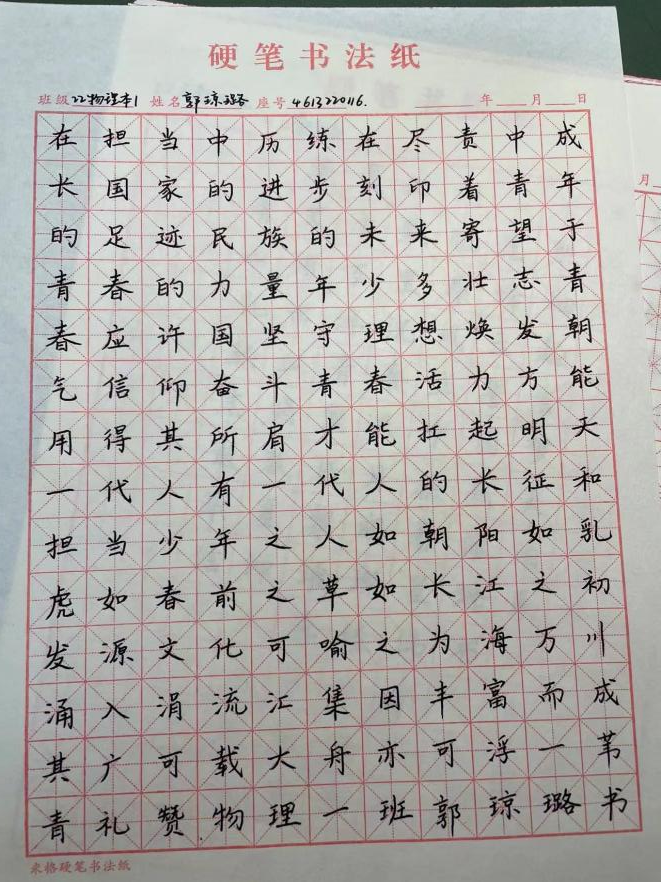 硬笔书法纸
班级22物理本1 姓名郭琼璐 座号4613220116. 年 月 日
在担当中历练在尽责中成
长国家的进步刻印着青年
的足迹民族的未来寄望于
青春的力量年少多壮志青
春应许国坚守理想焕发朝
气信仰奋斗青春活力方能
用得其所肩才能扛起明天
一代人有一代人的长征和
担当少年之人如朝阳如乳
虎如春前之草如长江之初
发源文化可喻之为海万川
涌入涓流汇集因丰富而成
其广可载大舟亦可浮一苇
青礼赞物理一班郭琼璐书
米格硬笔书法纸
月